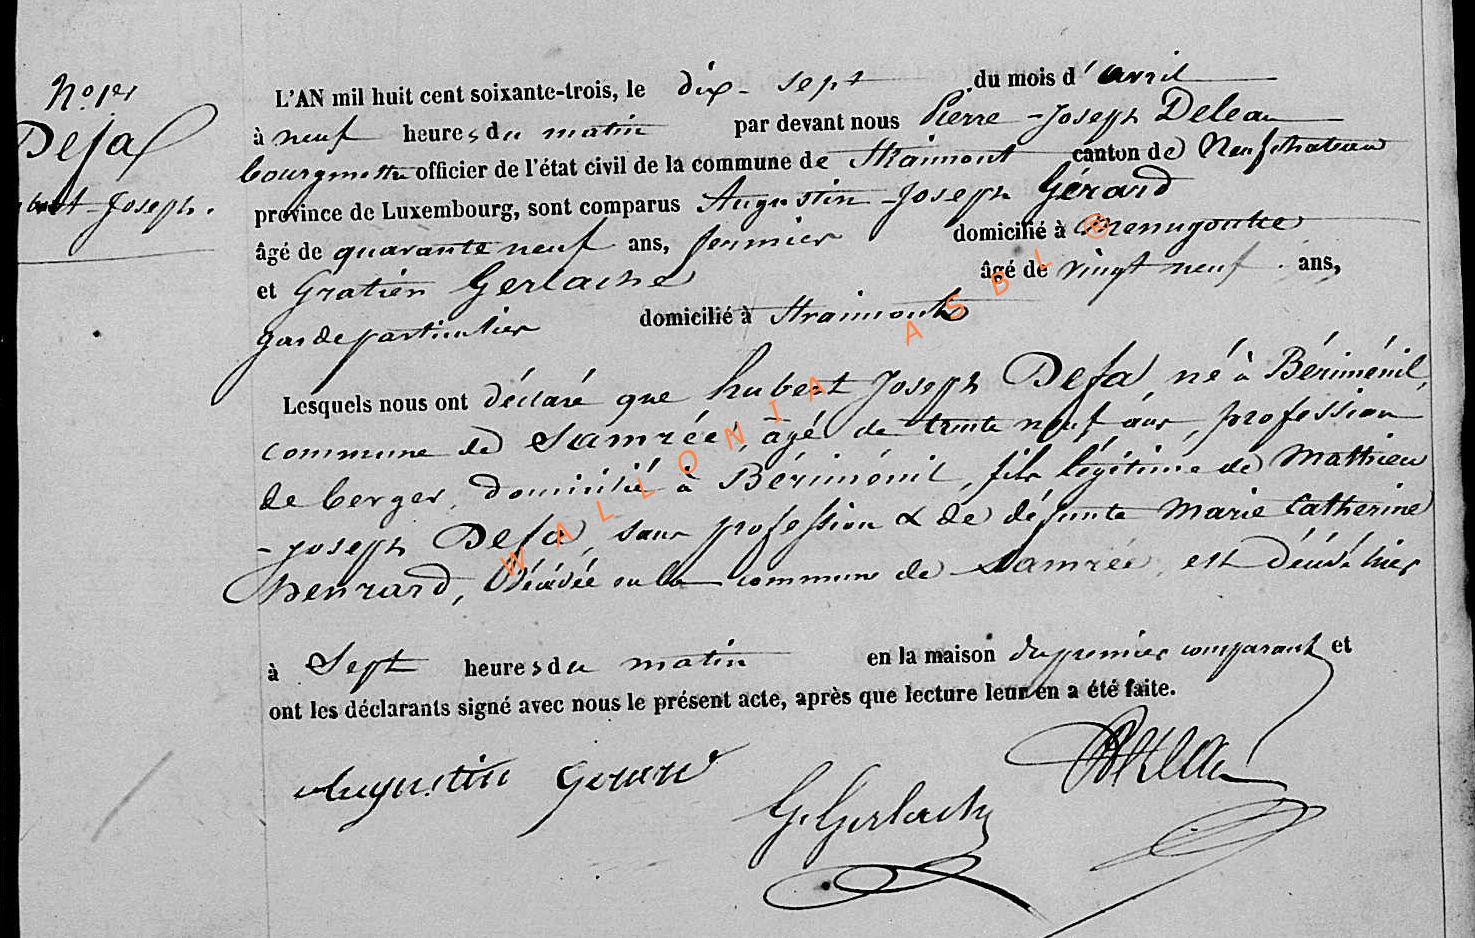 No. 1er
Defa
Joseph.
L'AN mil huit cent soixante-trois, le dix-sept du mois d'avril
à neuf heures du matin par devant nous Pierre-Joseph Deleau
bourgmestre officier de l'état civil de la commune de Straimont canton de Neufchateau
province de Luxembourg, sont comparus Augustin-Joseph Gérard
âgé de quarante neuf ans, fermier domicilié à Menugoutte
et Gratien Gerlache âgé de vingt neuf ans,
garde particulier domicilié à Straimont
Lesquels nous ont déclaré que hubert Joseph Defa, né à Bériménil,
commune de Samrée, âgé de trente neuf ans, profession
de berger, domicilié à Bériménil, fils légitime de Mathieu
-Joseph Defa, sans profession & de défunte Marie Catherine
henrard, décédée en la commune de Samrée, est décédé hier
à Sept heures du matin en la maison du premier comparant et
ont les déclarants signé avec nous le présent acte, après que lecture leur en a été faite.
Augustin Gerard
G. Gerlache
WALLONIA ASBL ©